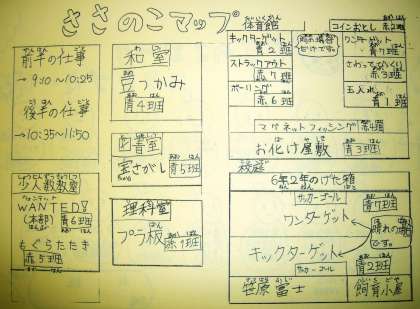 ささのこマップ
前半の仕事
→9:10~10:25
後半の仕事
→10:35~11:50
和室
豆つかみ
青4班
図書室
宝さがし
青5班
少人数教室
WANTED!!
(本部)
青6班
もぐらたたき
赤5班
理科室
プラ板
赤1班
体育館
キックターゲット
青2班
ストラックアウト
赤7班
ボーリング
赤6班
コインおとし
赤2班
ワンターゲット
青7班
さわってびっくり
赤3班
玉入れ
青1班
マグネットフィッシング
赤4班
お化け屋敷
青3班
校庭
6年2年のげた箱
サッカーゴール
青7班
ワンターゲット
晴れの場合
です。
キックターゲット
青2班
サッカーゴール
笹原富士
飼育小屋